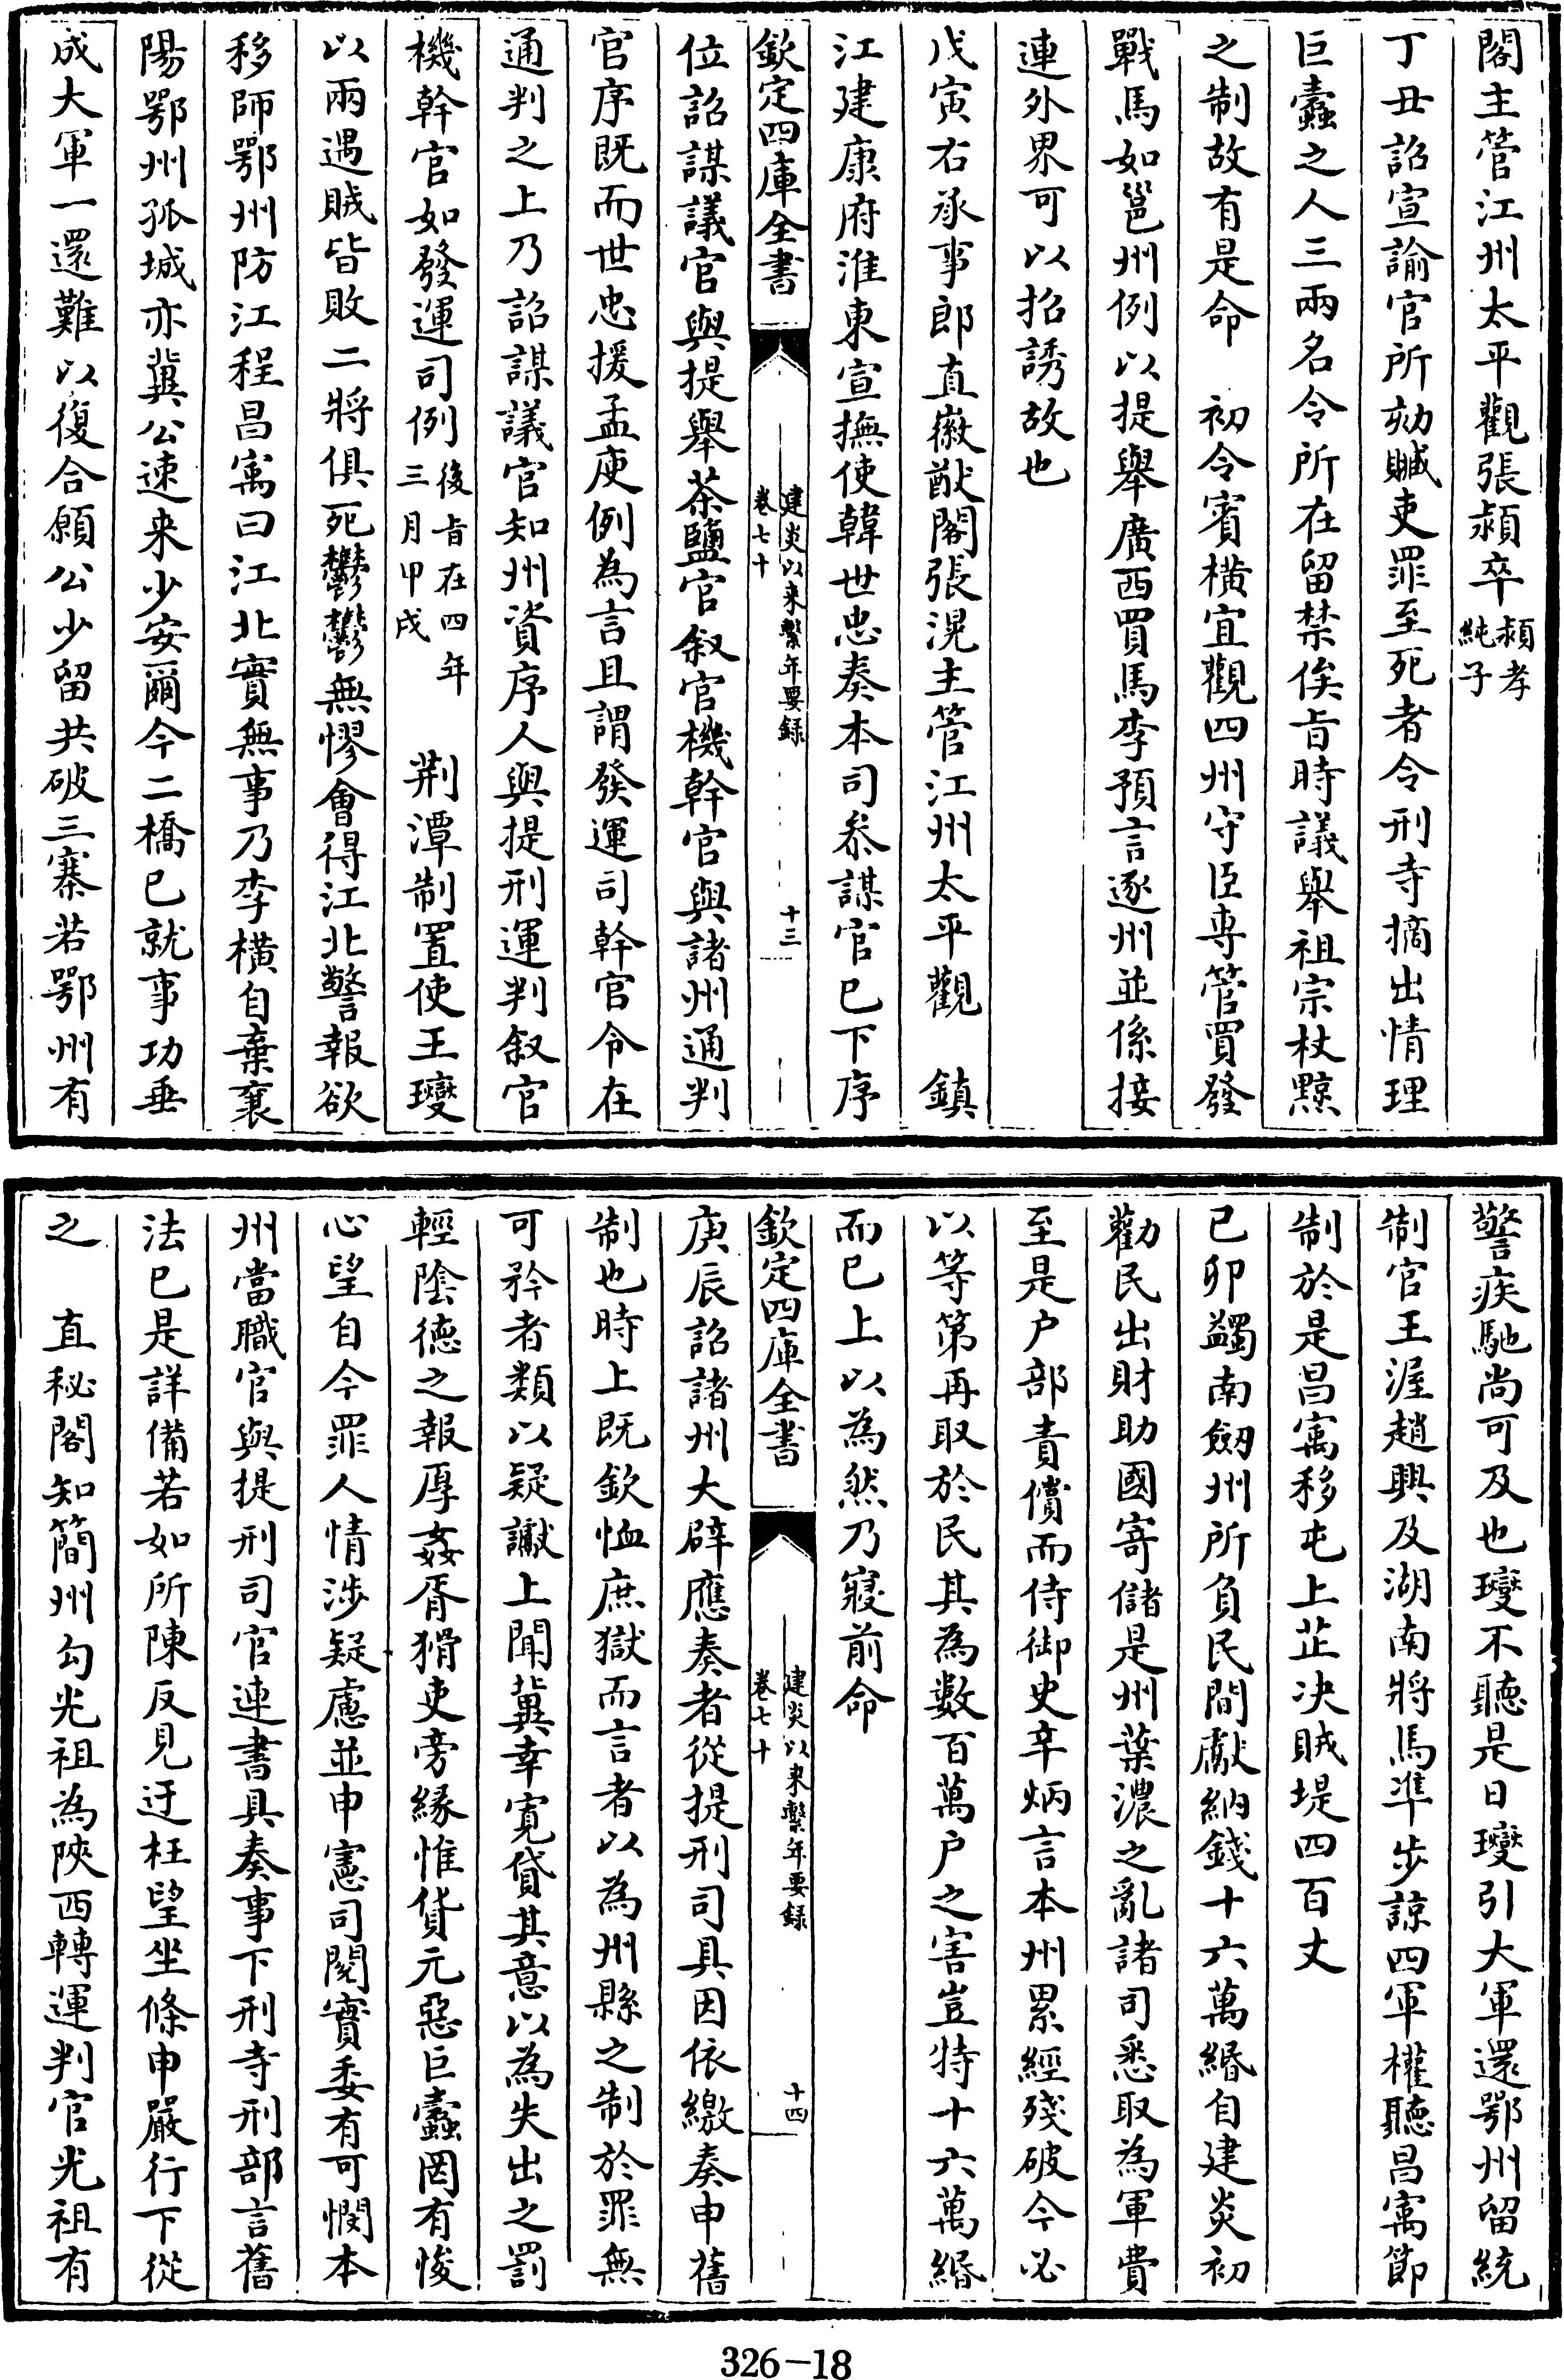 閣主管江州太平觀張澒卒澒孝
純子
丁丑詔宣諭官所劾贓吏罪至死者令刑寺摘出情理
巨蠹之人三兩名令所在留禁俟㫖時議舉祖宗杖黥
之制故有是命　初令賓橫宜觀四州守臣専管買發
戰馬如邕州例以提舉廣西買馬李預言逐州並係接
連外界可以招誘故也
戊寅右承事郎直徽猷閣張滉主管江州太平觀　鎮
江建康府淮東宣撫使韓世忠奏本司叅謀官已下序
欽定四庫全書
建炎以来繫年要録
卷七十
十三
位詔謀議官與提舉茶鹽官叙官機幹官與諸州通判
官序既而世忠援孟庾例為言且謂發運司幹官令在
通判之上乃詔謀議官知州資序人與提刑運判叙官
機幹官如發運司例後㫖在四年
三月甲戌
荆潭制置使王𤫉
以兩遇賊皆敗二將俱死鬱鬱無憀會得江北警報欲
移師鄂州防江程昌㝢曰江北實無事乃李横自棄襄
陽鄂州孤城亦冀公速来少安爾今二橋已就事功垂
成大軍一還難以復合願公少留共破三寨若鄂州有
警疾馳尚可及也𤫉不聽是日𤫉引大軍還鄂州留統
制官王渥趙興及湖南將馬凖步諒四軍權聽昌㝢節
制於是昌㝢移屯上芷决賊堤四百丈
已夘蠲南劔州所負民間獻納錢十六萬緡自建炎初
勸民出財助國寄儲是州葉濃之亂諸司悉取為軍費
至是户部責償而侍御史辛炳言本州累經殘破今必
以等第再取於民其為數百萬户之害豈特十六萬緡
而已上以為然乃寢前命
欽定四庫全書
建炎以来繫年要録
卷七十
十四
庚辰詔諸州大辟應奏者從提刑司具因依繳奏申舊
制也時上既欽恤庶獄而言者以為州縣之制於罪無
可矜者類以疑讞上聞冀幸寛貸其意以為失出之罰
輕隂徳之報厚姦胥猾吏旁緣惟貨元惡巨蠹罔有悛
心望自今罪人情涉疑慮並申憲司閱實委有可憫本
州當職官與提刑司官連書具奏事下刑寺刑部言舊
法已是詳備若如所陳反見迂枉望坐條申嚴行下從
之　直秘閣知簡州勾光祖為陜西轉運判官光祖有
326-18